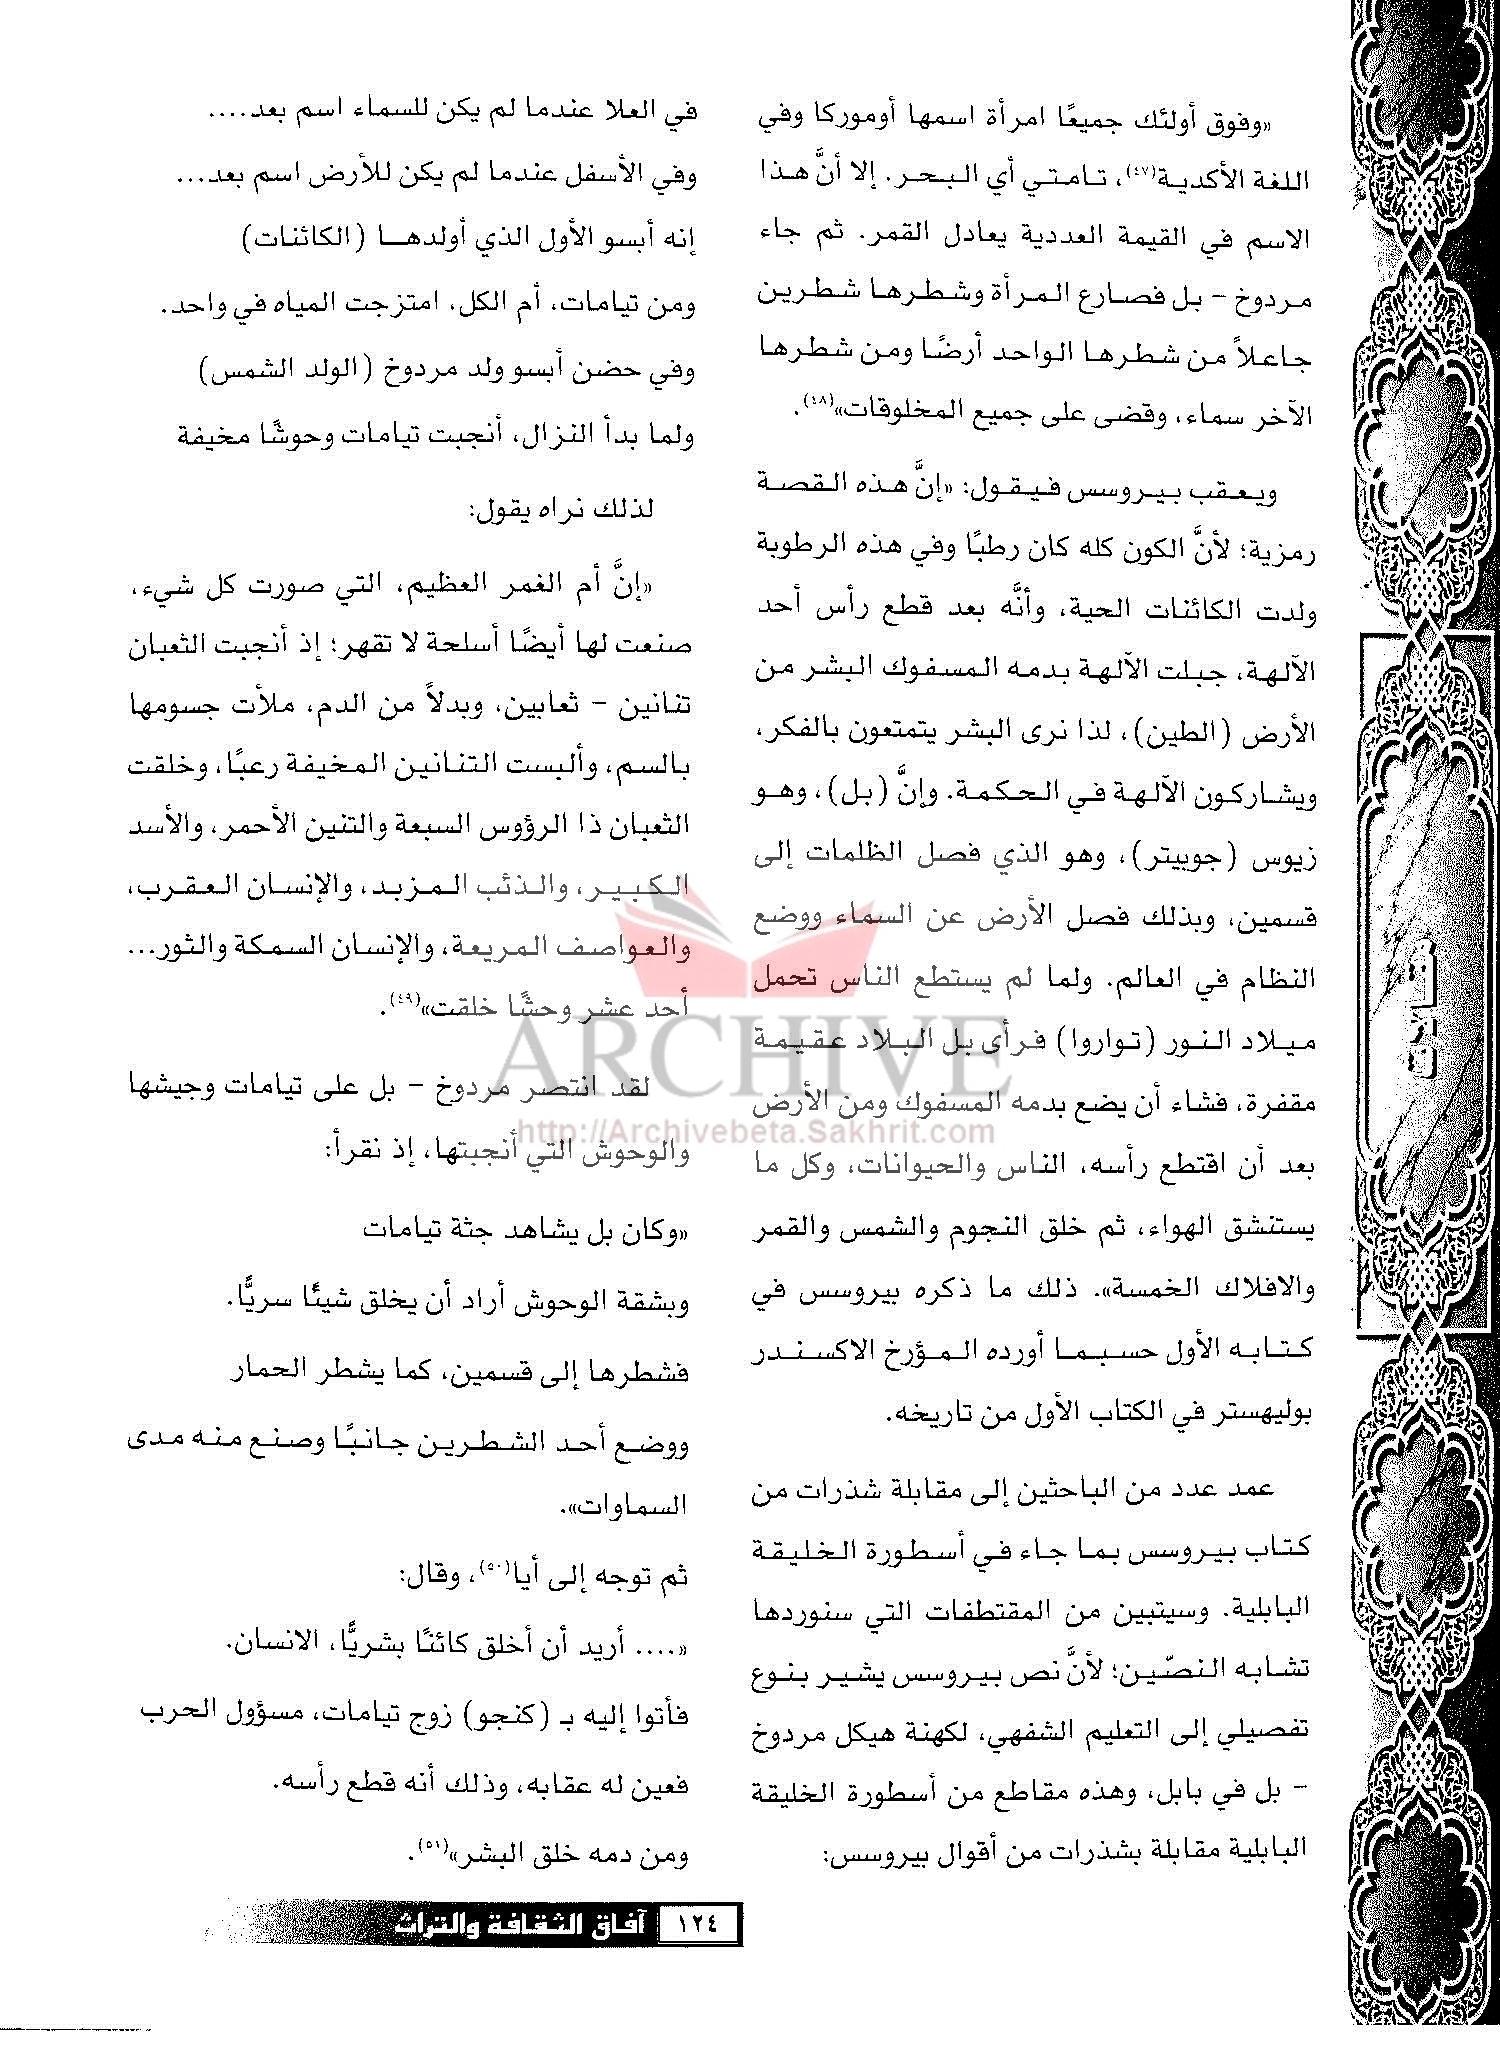 «وفوق أولئك جميعًا امرأة اسمها أوموركا وفي
اللغة الأكدية(٤٧)، تامتي أي البحر. إلا أنَّ هذا
الاسم في القيمة العددية يعادل القمر. ثم جاء
مردوخ - بل فصارع المرأة وشطرها شطرين
جاعلاً من شطرها الواحد أرضًا ومن شطرها
الآخر سماء، وقضى على جميع المخلوقات»(٤٨).
ويعقب بيروسس فيقول: «إنَّ هذه القصة
رمزية؛ لأنَّ الكون كله كان رطبًا وفي هذه الرطوبة
ولدت الكائنات الحية، وأنَّه بعد قطع رأس أحد
الآلهة، جبلت الآلهة بدمه المسفوك البشر من
الأرض (الطين)، لذا نرى البشر يتمتعون بالفكر،
ويشاركون الآلهة في الحكمة. وإنَّ (بل)، وهو
زيوس (جوبيتر)، وهو الذي فصل الظلمات إلى
قسمين، وبذلك فصل الأرض عن السماء ووضع
النظام في العالم. ولما لم يستطع الناس تحمل
ميلاد النور (تواروا) فرأى بل البلاد عقيمة
مقفرة، فشاء أن يضع بدمه المسفوك ومن الأرض
بعد أن اقتطع رأسه، الناس والحيوانات، وكل ما
يستنشق الهواء، ثم خلق النجوم والشمس والقمر
والافلاك الخمسة». ذلك ما ذكره بيروسس في
كتابه الأول حسبما أورده المؤرخ الاكسندر
بوليهستر في الكتاب الأول من تاريخه.
عمد عدد من الباحثين إلى مقابلة شذرات من
كتاب بيروسس بما جاء في أسطورة الخليقة
البابلية. وسيتبين من المقتطفات التي سنوردها
تشابه النصّين؛ لأنَّ نص بيروسس يشير بنوع
تفصيلي إلى التعليم الشفهي، لكهنة هيكل مردوخ
- بل في بابل، وهذه مقاطع من أسطورة الخليقة
البابلية مقابلة بشذرات من أقوال بيروسس:
في العلا عندما لم يكن للسماء اسم بعد....
وفي الأسفل عندما لم يكن للأرض اسم بعد...
إنه أبسو الأول الذي أولدها (الكائنات)
ومن تيامات، أم الكل، امتزجت المياه في واحد.
وفي حضن أبسو ولد مردوخ (الولد الشمس)
ولما بدأ النزال، أنجبت تيامات وحوشًا مخيفة
لذلك نراه يقول:
«إنَّ أم الغمر العظيم، التي صورت كل شيء،
صنعت لها أيضًا أسلحة لا تقهر؛ إذ أنجبت الثعبان
تنانين - ثعابين، وبدلاً من الدم، ملأت جسومها
بالسم، وألبست التنانين المخيفة رعبًا، وخلقت
الثعبان ذا الرؤوس السبعة والتنين الأحمر، والأسد
الكبير، والذئب المزبد، والإنسان العقرب،
والعواصف المريعة، والإنسان السمكة والثور...
أحد عشر وحشًا خلقت»(٤٩).
لقد انتصر مردوخ - بل على تيامات وجيشها
والوحوش التي أنجبتها، إذ نقرأ:
«وكان بل يشاهد جثة تيامات
وبشقة الوحوش أراد أن يخلق شيئًا سريًّا.
فشطرها إلى قسمين، كما يشطر الحمار
ووضع أحد الشطرين جانبًا وصنع منه مدى
السماوات».
ثم توجه إلى أيا(٥٠)، وقال:
«.... أريد أن أخلق كائنًا بشريًّا، الانسان.
فأتوا إليه بـ (كنجو) زوج تيامات، مسؤول الحرب
فعين له عقابه، وذلك أنه قطع رأسه.
ومن دمه خلق البشر»(٥١).
مقالات
ARCHIVE
http://Archivebeta.Sakhrit.com
١٢٤ آفاق الثقافة والتراث